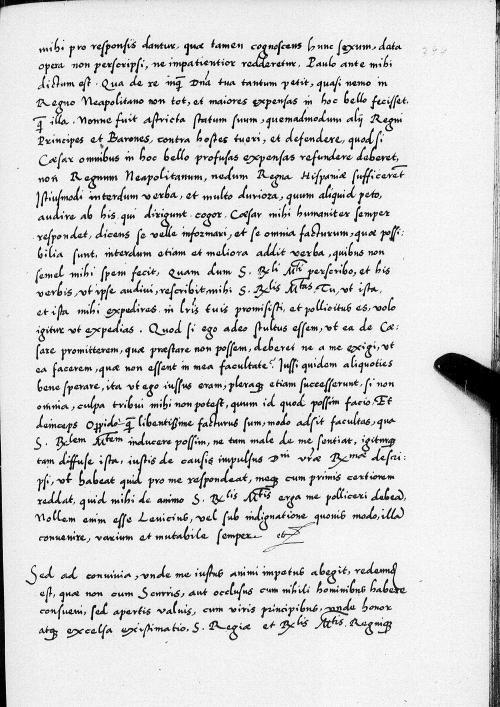 mihi pro responsis dantur, quæ tamen cognoscens hunc sexum, data
opera non perscripsi, ne impatientior redderetur. Paulo ante mihi
dictum est. Qua de re inq̃ Dña tua tantum petit, quasi nemo in
Regno Neapolitano non tot, et maiores expensas in hoc bello fecisset,
q̃ illa. Nonne fuit astricta statum suum, quemadmodum alij Regni
Principes et Barones, contra hostes tueri, et defendere, quod si
Cæsar omnibus in hoc bello profusas expensas refundere deberet,
non Regnum Neapolitanum, nedum Regna Hispaniæ sufficeret
Istiusmodi interdum verba, et multo duriora, quum aliquid peto,
audire ab his qui dirigunt cogor. Cæsar mihi humaniter semper
respondet, dicens se velle informari, et se omnia facturum, quæ possi:
bilia sunt, interdum etiam et meliora addit verba, quibus non
semel mihi spem fecit. Quam dum S. Rli Mti perscribo, et his
verbis, vt ipse audivi, rescribit mihi S. Rlis Mtas, Tu, vt ista,
et ista mihi expedires in lr̃is tuis promisisti, et pollicitus es, volo
igitur vt expedias. Quod si ego adeo stultus essem, vt ea de Cæ:
sare promitterem, quæ præstare non possem, deberet ne a me exigi, vt
ea facerem, quæ non essent in mea facultate? Iussi quidem aliquoties
bene sperare, ita vt ego iussus eram, pleraq̃ etiam successerunt, si non
omnia, culpa tribui mihi non potest, quum id quod possim facio. Et
deinceps Oppido q̃ libentissime facturus sum, modo adsit facultas, qua
S. Rlem Mtem inducere possim, ne tam male de me sentiat, igitur
tam diffuse ista, iustis de causis impulsus Dni vr̃æ Rmæ descri:
psi, vt habeat quid pro me respondeat, meq̃ cum primis certiorem
reddat, quid mihi de animo S. Rlis Mtis erga me polliceri debeā,
Nollem enim esse Leuicius, vel sub indignatione quouis modo, illā
convenire, varium et mutabile semper etc
Sed ad convivia, vnde me iustus animi impetus abegit, redeundū
est, quæ non cum Scurris, aut occlusus cum nihili hominibus habere
consuevi, sed apertis valuis, cum viris principibus, vnde honor
atq̃ excelsa existimatio, S. Regiæ et Rlis Mtis, Regniq̃